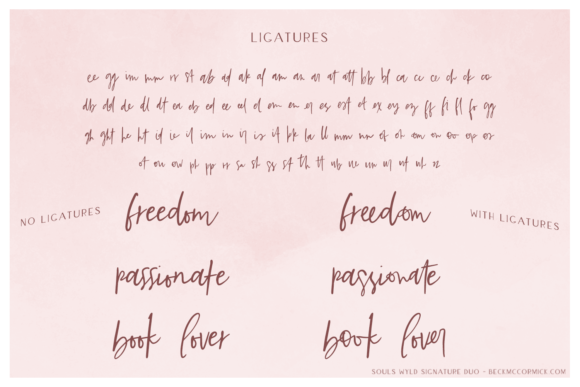 LIGATURES
ee gg im mm rr st ab ad ak al am an ar at att bb bl ca cc ce ch ck co
db dd de dl dt ea eb ed ee eel el em en er es est et ex ey ez ff fi fl fo gg
gh ght he ht id ie il im in ir is it kk la ll mm nn of oh om on oo op or
ot ou ow pl pp rr sa sh ss st th tt ub ue um ur ut wh zz
NO LIGATURES
freedom
freedom
WITH LIGATURES
passionate
passionate
book lover
book lover
SOULS WYLD SIGNATURE DUO - BECKMCCORMICK.COM